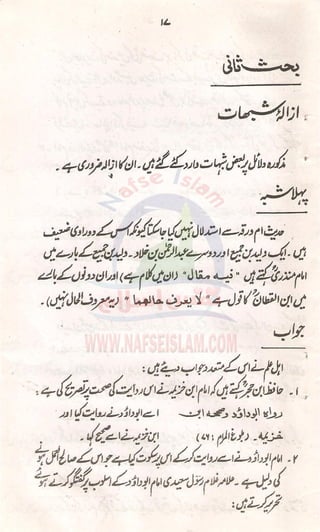 ۱۷
بحث ثانی
ازالۂ شبہات
مذکورہ دلائل پر بعض شبہات وارد کئے گئے ہیں۔ ان کا ازالہ ضروری ہے۔
پہلا شبہ
حدیث ام ورقہ سے استدلال نہیں کیا جا سکتا کیونکہ اس کے دو راوی ضعیف
ہیں۔ ایک ولید بن جمیع اور دوسرے عبدالرحمٰن بن خلاد۔ ولید بن جمیع کے بارے میں
امام منذری کہتے ہیں "فیہ مقال" (ان میں کلام ہے) اور ان دونوں کے بارے
میں ابن القطانؒ کا قول ہے "لا یعرف حالھما" (یہ معروف الحال نہیں)۔
جواب
اہل علم نے اس کے متعدد جواب دیئے ہیں۔
۱۔ حافظ ابن حجرؒ کہتے ہیں کہ امام ابن خزیمہ نے اس روایت کی صحت پر تصریح کی ہے:
رواہ ابوداؤد وصححہ ابن اسے ابوداؤد نے روایت کیا اور
خزیمۃ۔ (بلوغ المرام: ۴۶) ابن خزیمہ نے اسے صحیح کہا۔
۲۔ امام ابوداؤد نے اسے روایت کر کے اس پر سکوت کیا ہے جو اس کے صالح للعمل ہونے
کی دلیل ہے۔ علامہ غلام رسول سعیدی امام ابوداؤد کے اسلوب پر گفتگو کرتے ہوئے
تحریر کرتے ہیں:
Nafse Islam
WWW.NAFSEISLAM.COM